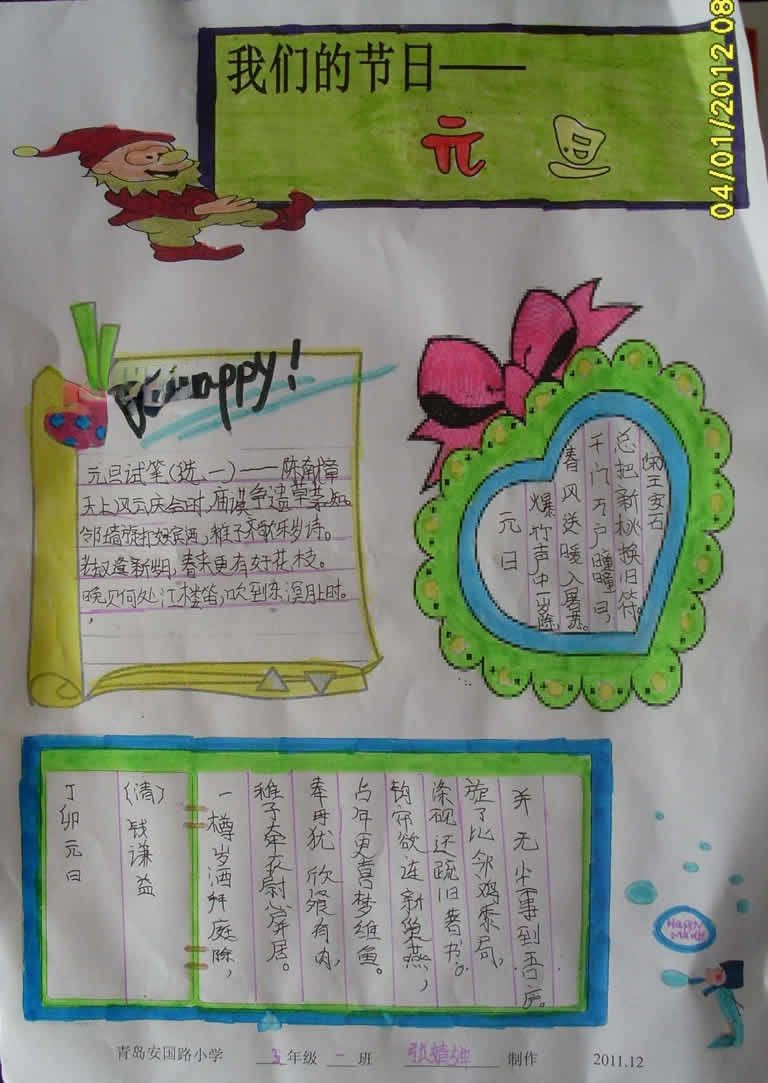 我们的节日——
元旦
04/01/2012 08
Happy!
元旦试笔(选一)——陈献章
天上风云庆会时,庙谟争遗草茅知。
邻墙旋打娱宾酒,稚子齐歌乐岁诗。
老去又逢新岁月,春来更有好花枝。
晚风何处江楼笛,吹到东溟月上时。
元日
爆竹声中一岁除
春风送暖入屠苏。
千门万户曈曈日,
总把新桃换旧符。
宋王安石
丁卯元日
(清)钱谦益
一樽岁酒拜庭除,
稚子牵衣慰屏居。
奉母犹欣餐有肉,
占年更喜梦维鱼。
钩帘欲连新巢燕,
涤砚还疏旧著书。
旋了比邻鸡黍局,
并无尘事到吾庐。
青岛安国路小学 五年级 一 班 制作 2011.12